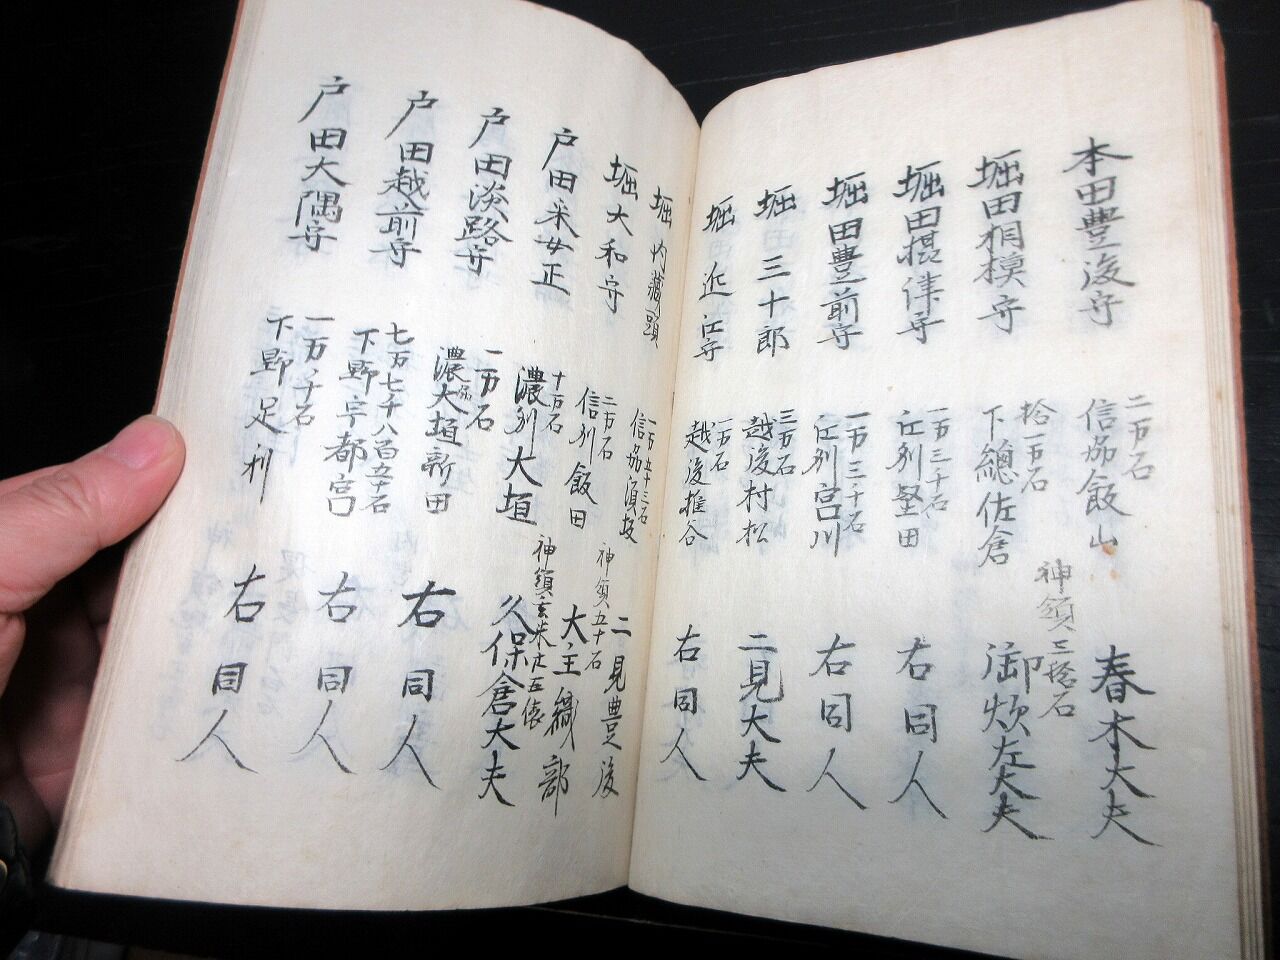 本田豊後守
二万石
信州飯山
春木大夫
堀田相模守
拾一万石
下總佐倉
神領三拾石
御炊左大夫
堀田摂津守
一万三千石
江州堅田
右同人
堀田豊前守
一万三千石
江州宮川
右同人
堀三十郎
三万石
越後村松
二見大夫
堀近江守
一万石
越後椎谷
右同人
堀内藏頭
一万五十三石
信州須坂
神領五十石
二見豊後
堀大和守
二万石
信州飯田
大主織部
戸田采女正
十万石
濃州大垣
神領玄米廿五俵
久保倉大夫
戸田淡路守
一万石
濃州大垣新田
右同人
戸田越前守
七万七千八百五十石
下野宇都宮
右同人
戸田大隅守
一万千石
下野足利
右同人